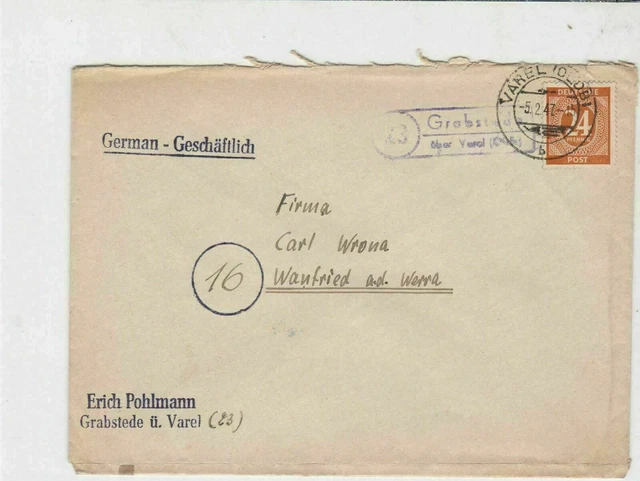 VAREL (OLDB)
-5.2.47
b
DEUTSCHE
24
POST
23
Grabstede
über Varel (Oldb)
German - Geschäftlich
Firma
Carl Wrona
16
Wanfried a.d. Werra
Erich Pohlmann
Grabstede ü. Varel (23)